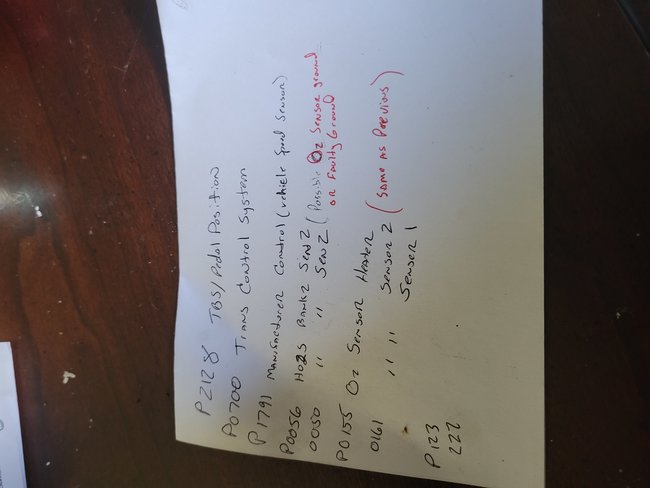 P2128 TBS/Pedal Position
P0700 Trans Control System
P1791 Manufacturer Control (vehicle speed sensor)
P0056 HO2S Bank 2 Sen 2 (Possible O2 Sensor ground
0050 " " Sen 2 or Faulty Ground
P0155 O2 Sensor Heater
0161 " " Sensor 2 (Same as Previous)
Sensor 1
P123
222